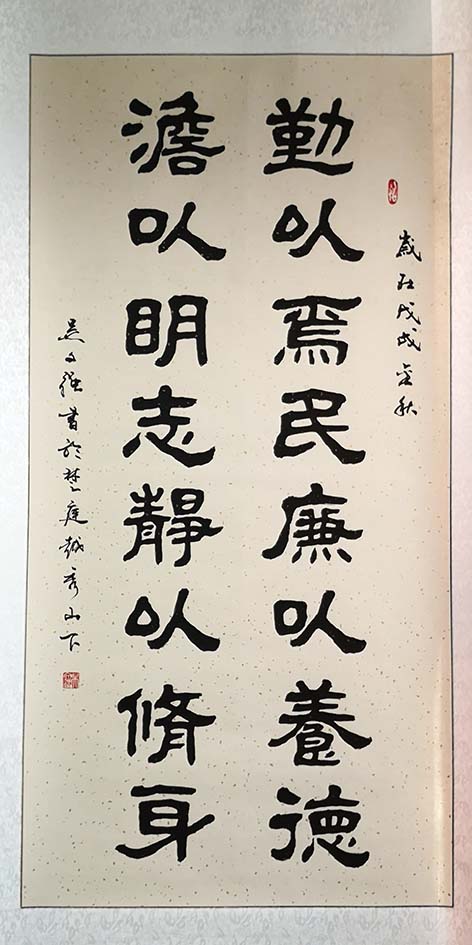 歲在戊戌金秋
勤以為民廉以養德
澹以明志靜以脩身
吴文强書於楚庭越秀山下